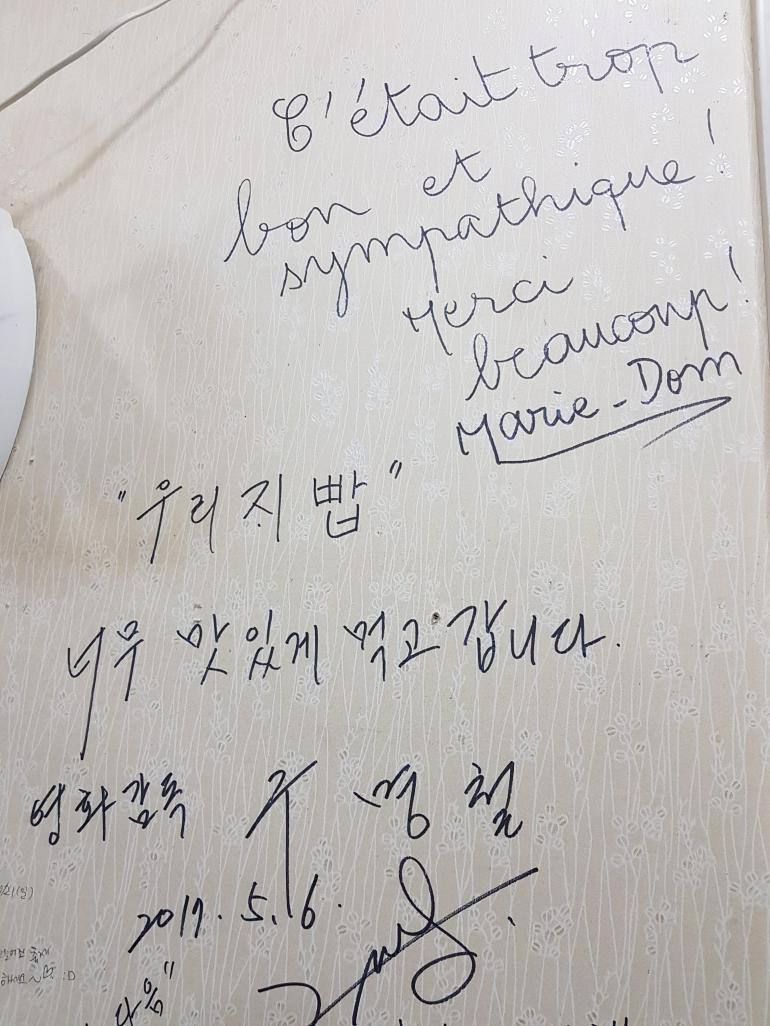 C'était trop
bon et
sympathique !
Merci
beaucoup !
Marie-Dom
"우리지빱"
너무 맛있게 먹고 갑니다.
영화감독 주
2017. 5. 6.